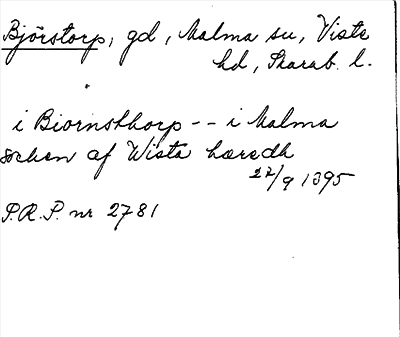 Björstorp, gd, Malma sn, Viste
hd, Skarab. l.
i Biornsthorp -- i Malma
sochen af Wista hæredh
27/9 1395
P.R.P. nr 2781